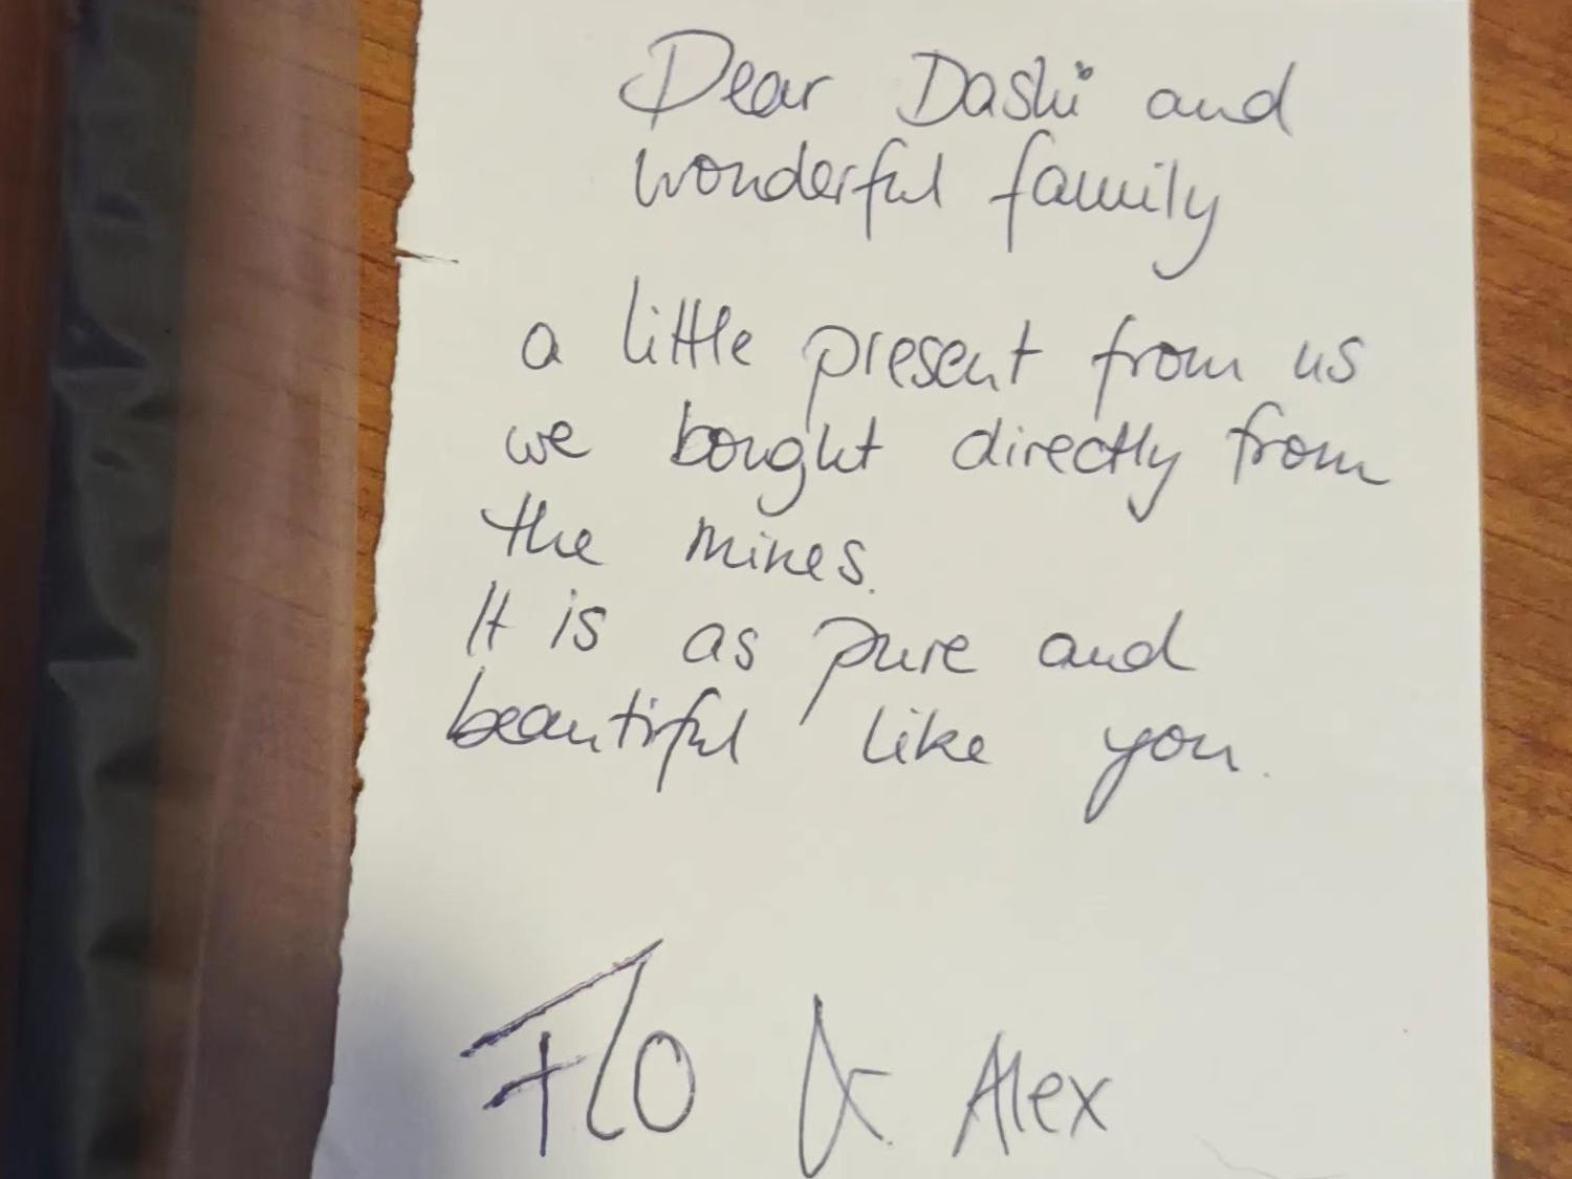 Dear Dashi and
wonderful family
a little present from us
we bought directly from
the mines.
It is as pure and
beautiful like you.
Flo & Alex